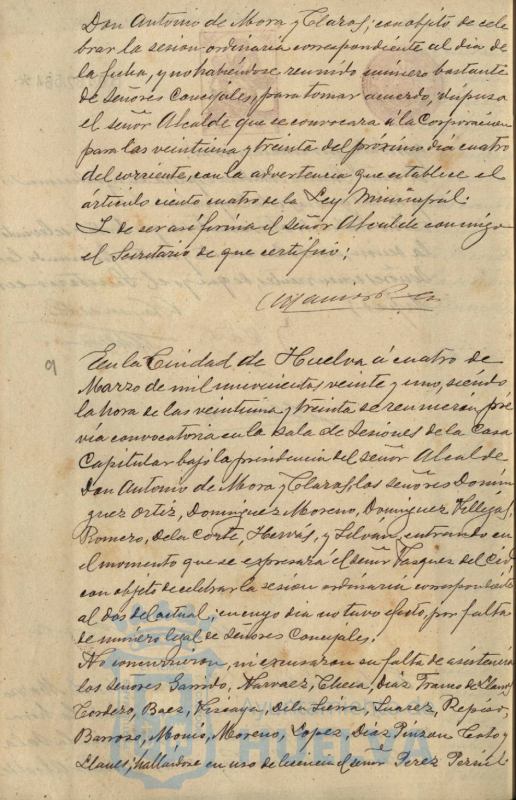 Don Antonio de Mora y Claros; con objeto de cele
brar la sesion ordinaria correspondiente al dia de
la fecha, y no habiéndose reunido número bastante
de Señores Concejales, para tomar acuerdo, dispuso
el señor Alcalde que se convocara á la Corporacion
para las veintiuna y treinta del próximo dia cuatro
del corriente, con la advertencia que establece el
artículo ciento cuatro de la Ley Municipal.
Y de ser así firma el señor Alcalde conmigo
el Secretario de que certifico;
9
En la Ciudad de Huelva á cuatro de
Marzo de mil novecientos veinte y uno, siendo
la hora de las veintiuna y treinta se reunieron, pré
via convocatoria en la Sala de Sesiones de la Casa
Capitular bajo la presidencia del señor Alcalde
Don Antonio de Mora y Claros, los señores Domin
guez Ortiz, Dominguez Moreno, Dominguez Villegas,
Romero, de la Corte, Hervás, y Selván, entrando en
el momento que se expresará el señor Vasques del Cid,
con objeto de celebrar la sesion ordinaria correspondiente
al dos del actual, en cuyo dia no tuvo efecto, por falta
de número legal de Señores Concejales.
No concurrieron, ni excusaron su falta de asistencia
los señores Garrido, Narvaez, Checa, Diaz Franco de Llanos
Cordero, Baez, Vizcaya, de la Sierra, Suarez, Repiso,
Barroso, Monis, Moreno, Lopez, Diaz Pinzon, Coto y
Llanes, hallándose en uso de licencia el señor Perez
HUELVA